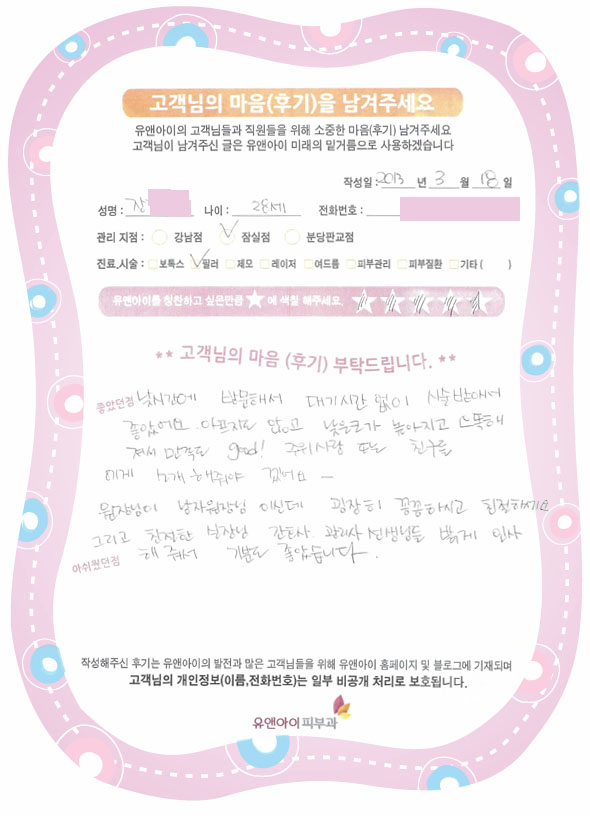 고객님의 마음(후기)을 남겨주세요
유앤아이의 고객님들과 직원들을 위해 소중한 마음(후기) 남겨주세요
고객님이 남겨주신 글은 유앤아이 미래의 밑거름으로 사용하겠습니다
작성일 : 2013 년 3 월 18 일
성명 : 나이 : 28세 전화번호 :
관리 지점 : 강남점 잠실점 분당판교점
진료,시술 : 보톡스 필러 제모 레이저 여드름 피부관리 피부질환 기타 ( )
유앤아이를 칭찬하고 싶은만큼 ★ 에 색칠 해주세요.
** 고객님의 마음 (후기) 부탁드립니다. **
좋았던점 낮시간에 방문해서 대기시간 없이 시술받아서
좋았어요. 아프지도 않고 낮을코가 높아지고 오똑해
져서 만족도 good! 주위사람 또는 친구들
에게 소개해줘야 겠어요 —
원장님이 남자원장님 이신데 굉장히 꼼꼼하시고 친절하세요
그리고 친절한 실장님 간호사. 관리사 선생님들 밝게 인사
해 줘서 기분도 좋았습니다.
아쉬웠던점
작성해주신 후기는 유앤아이의 발전과 많은 고객님들을 위해 유앤아이 홈페이지 및 블로그에 기재되며
고객님의 개인정보(이름,전화번호)는 일부 비공개 처리로 보호됩니다.
유앤아이피부과